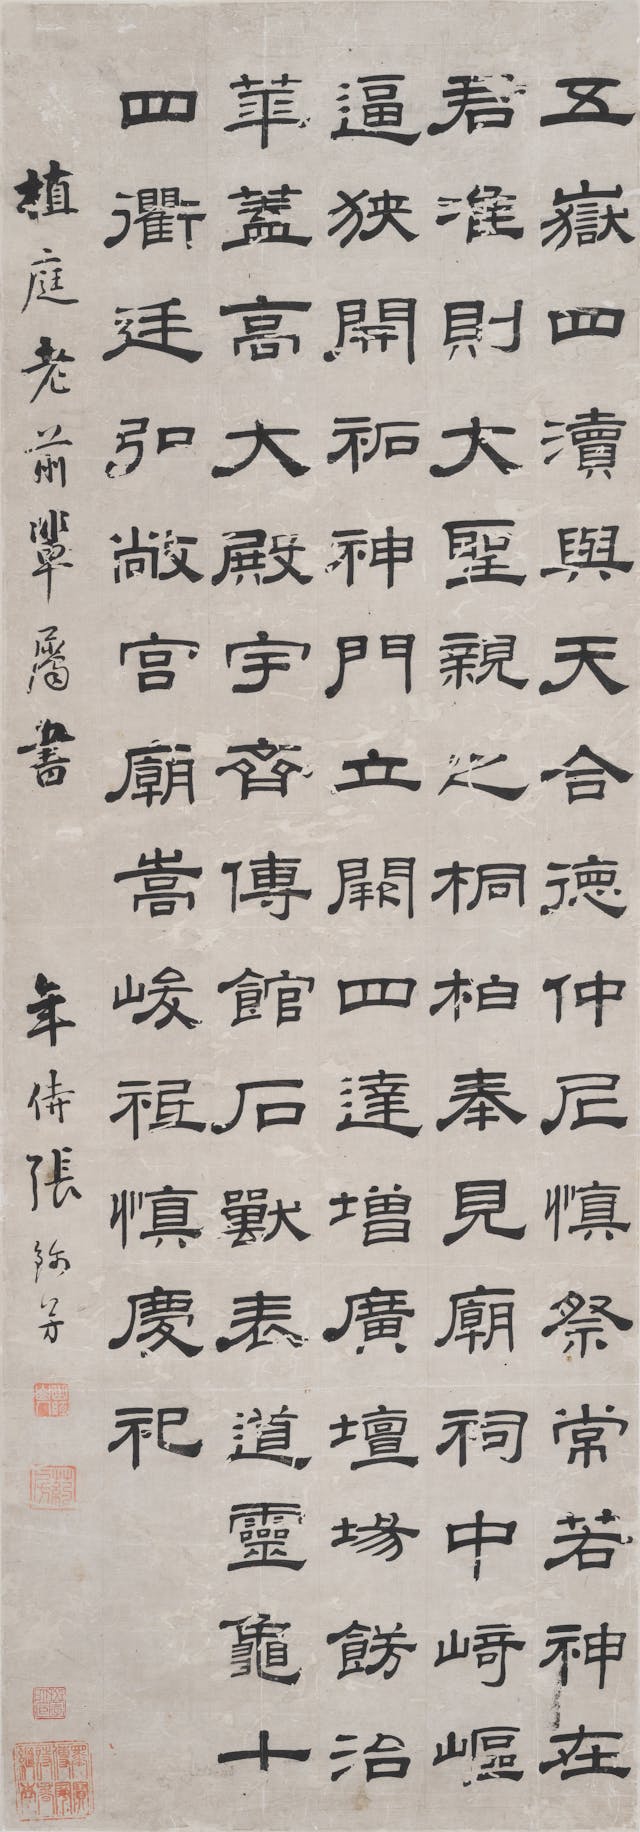 五嶽四瀆與天合德仲尼慎祭常若神在
君准則大聖親之桐柏奉見廟祠中崎嶇
逼狹開祏神門立闕四達增廣壇場餝治
華蓋高大殿宇齊傳館石獸表道靈龜十
四衢廷弘敞宮廟嵩峻祗慎慶祀
植庭老前輩屬書
年侍張